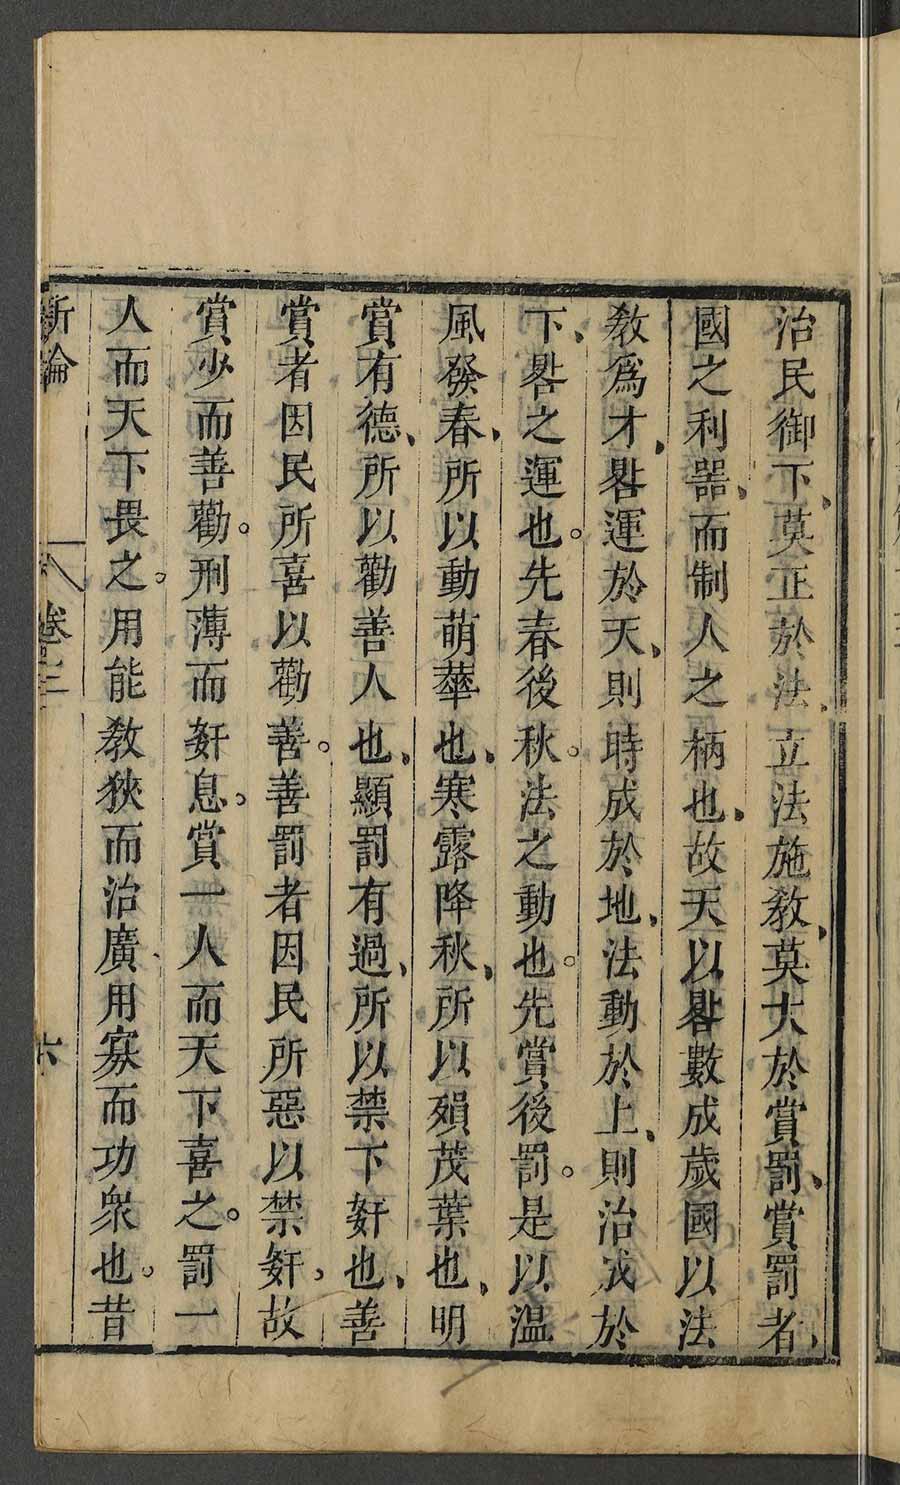 治民御下、莫正於法、立法施敎、莫大於賞罰、賞罰者、
國之利噐、而制人之柄也、故天以晷數成歲國以法
敎爲才、晷運於天、則時成於地、法動於上、則治成於
下、晷之運也。先春後秋。法之動也。先賞後罰。是以温
風發春、所以動萌蕐也、寒露降秋、所以殞茂葉也、明
賞有德、所以勸善人也、顯罰有過、所以禁下姧也、善
賞者因民所喜以勸善。善罰者因民所惡以禁姧、故
賞少而善勸。刑薄而姧息。賞一人而天下喜之。罰一
人而天下畏之。用能敎狹而治廣、用寡而功衆也。昔
新論
卷之二
六